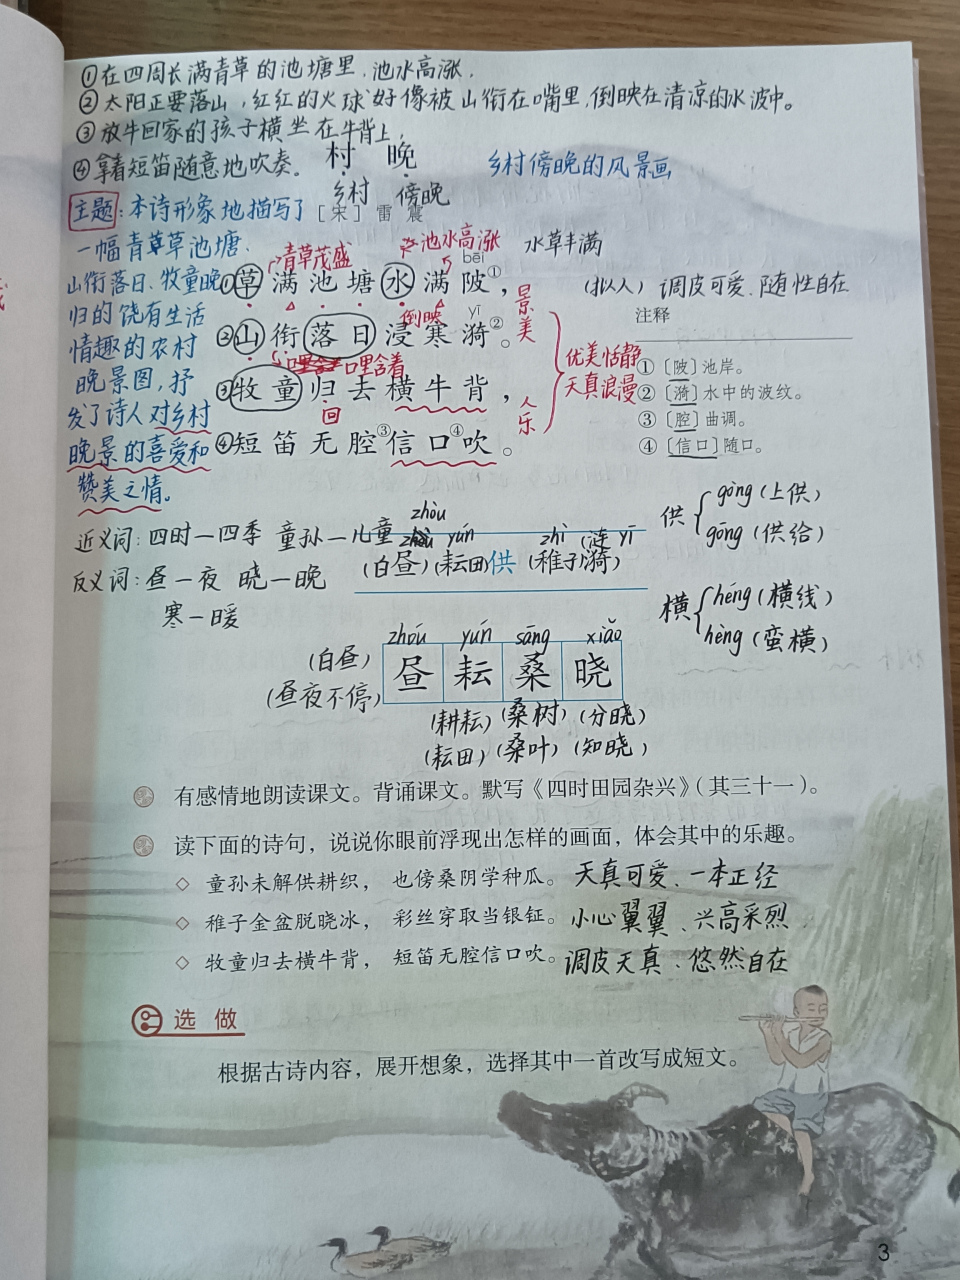 ①在四周长满青草的池塘里,池水高涨.
②太阳正要落山,红红的火球好像被山衔在嘴里,倒映在清凉的水波中。
③放牛回家的孩子横坐在牛背上,
④拿着短笛随意地吹奏。
村晚
乡村傍晚的风景画
乡村 傍晚
[宋]雷震
主题:本诗形象地描写了
一幅青草池塘、
山衔落日、牧童晚
归的饶有生活
情趣的农村
晚景图,抒
发了诗人对乡村
晚景的喜爱和
赞美之情。
青草茂盛
池水高涨 水草丰满
bēi
①草满池塘水满陂①,
(拟人)调皮可爱、随性自在
倒映 yī
②山衔落日浸寒漪②。
口里含着
③牧童归去横牛背,
回
④短笛无腔③信口④吹。
景美
人乐
优美恬静
天真浪漫
注释
①〔陂〕池岸。
②〔漪〕水中的波纹。
③〔腔〕曲调。
④〔信口〕随口。
近义词:四时—四季 童孙—儿童
反义词:昼—夜 晓—晚
寒—暖
zhòu yún zhì yī
(白昼)(耘田)供(稚子)(涟漪)
供 gòng(上供)
gōng(供给)
横 héng(横线)
hèng(蛮横)
zhóu yún sāng xiǎo
昼耘桑晓
(白昼)
(昼夜不停)
(耕耘)(桑树)(分晓)
(耘田)(桑叶)(知晓)
有感情地朗读课文。背诵课文。默写《四时田园杂兴》(其三十一)。
读下面的诗句,说说你眼前浮现出怎样的画面,体会其中的乐趣。
◇ 童孙未解供耕织,也傍桑阴学种瓜。天真可爱、一本正经
◇ 稚子金盆脱晓冰,彩丝穿取当银钲。小心翼翼、兴高采烈
◇ 牧童归去横牛背,短笛无腔信口吹。调皮天真、悠然自在
选做
根据古诗内容,展开想象,选择其中一首改写成短文。
3